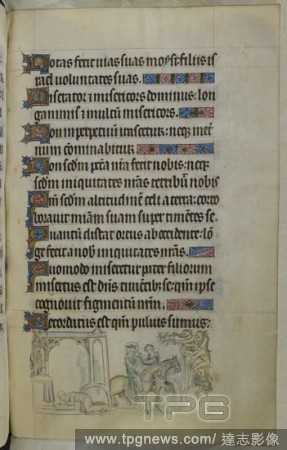 Notas fecit vias suas moysi: filiis is
rael voluntates suas.
Miserator & misericors dominus: lon
ganimis & multum misericors.
Non in perpetuum irascetur: neqz
num comminabitur
Non sedm nra fecit nobis: neqz
sedm iniquitates nras retribuit nobis
sedm altitudinē celi a terra: corro
boravit miam suam super timētes se
Quantū distat ortus ab occidente: lō
ge fecit a nob iniquitates nras.
Quomodo miseretur pater filiorum
misertus est dns timētibz se: qm ipse
cognovit figmentū nrm.
Recordatus est qm pulvis sumus:
TPG
www.tpgnews.com/ 達志影像